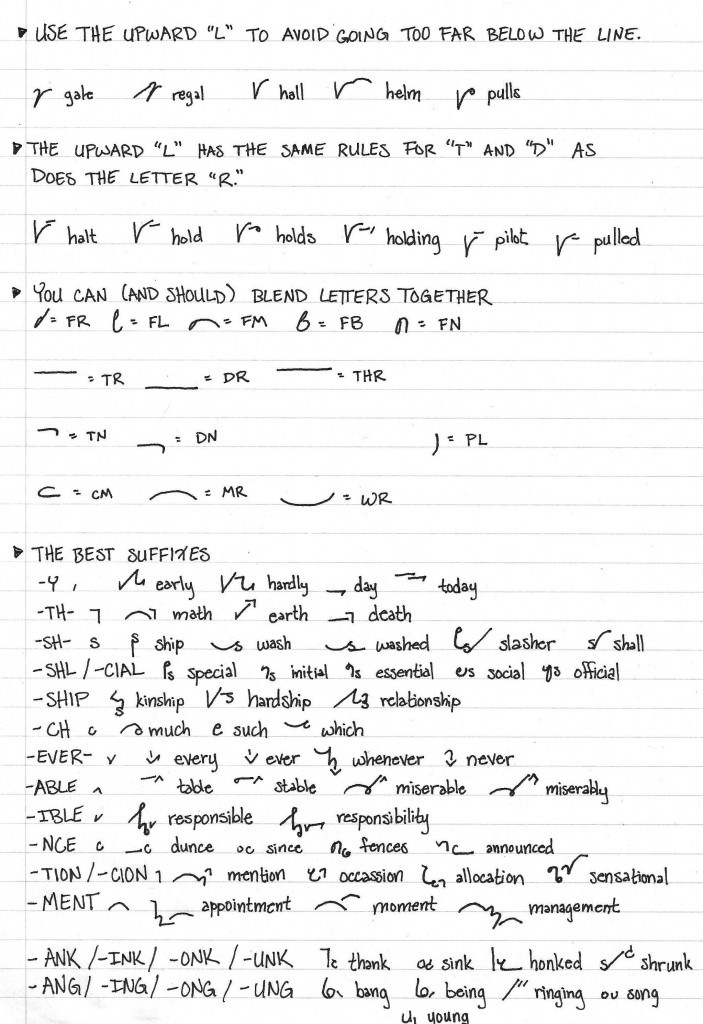 ▸ USE THE UPWARD "L" TO AVOID GOING TOO FAR BELOW THE LINE.
gale regal hall helm pulls
▸ THE UPWARD "L" HAS THE SAME RULES FOR "T" AND "D" AS
DOES THE LETTER "R."
halt hold holds holding pilot pulled
▸ YOU CAN (AND SHOULD) BLEND LETTERS TOGETHER
= FR = FL = FM = FB = FN
= TR = DR = THR
= TN = DN = PL
= CM = MR = WR
▸ THE BEST SUFFIXES
-Y early hardly day today
-TH- math earth death
-SH- ship wash washed slasher shall
-SHL/-CIAL special initial essential social official
-SHIP kinship hardship relationship
-CH much such which
-EVER- every ever whenever never
-ABLE table stable miserable miserably
-IBLE responsible responsibility
-NCE dunce since fences announced
-TION/-CION mention occassion allocation sensational
-MENT appointment moment management
-ANK/-INK/-ONK/-UNK thank sink honked shrunk
-ANG/-ING/-ONG/-UNG bang being ringing song
young